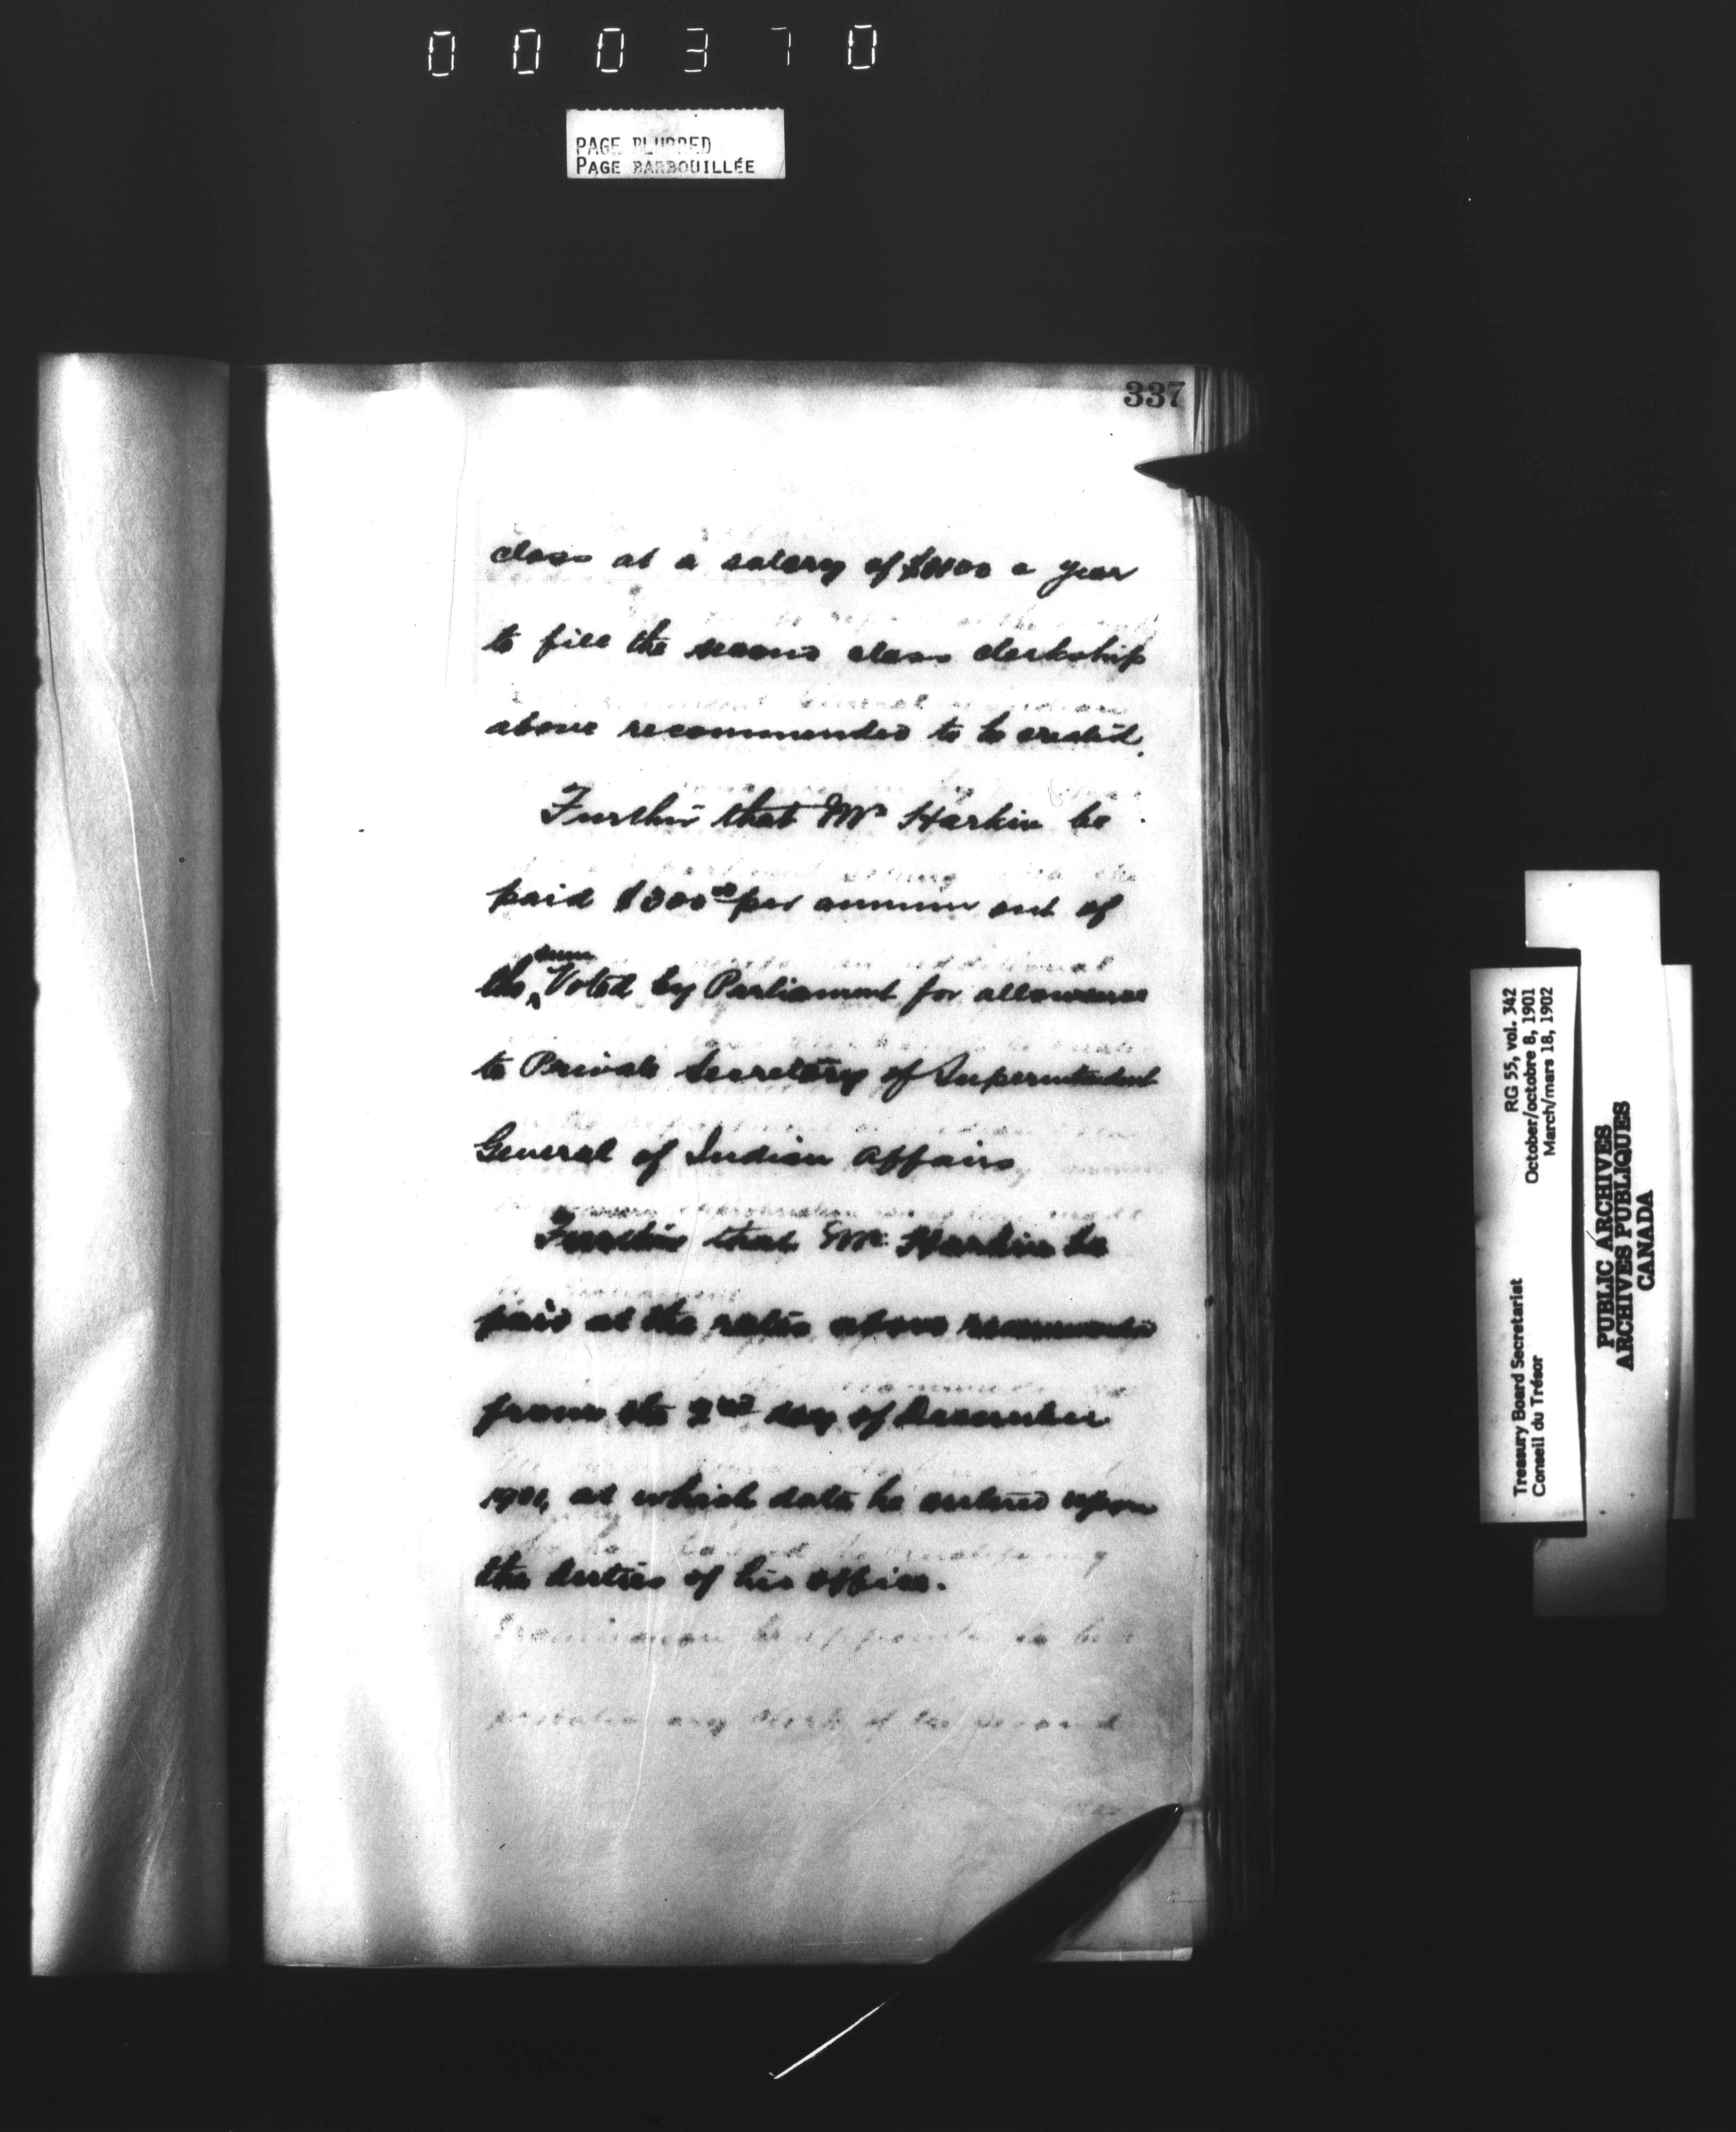 000370
PAGE BLURRED
PAGE BARBOUILLÉE
337
class at a salary of $1100 a year
to fill the second class clerkship
above recommended to be created.
Further that Mr Harkin be
paid $300.00 per annum out of
the sum Voted by Parliament for allowance
to Private Secretary of Superintendent
General of Indian Affairs,
Further that Mr. Harkin be
paid at the rates above recommended
from the 2nd day of December
1901, at which date he entered upon
the duties of his office.
Treasury Board Secretariat RG 55, vol. 342
Conseil du Trésor October/octobre 8, 1901
March/mars 18, 1902
PUBLIC ARCHIVES
ARCHIVES PUBLIQUES
CANADA